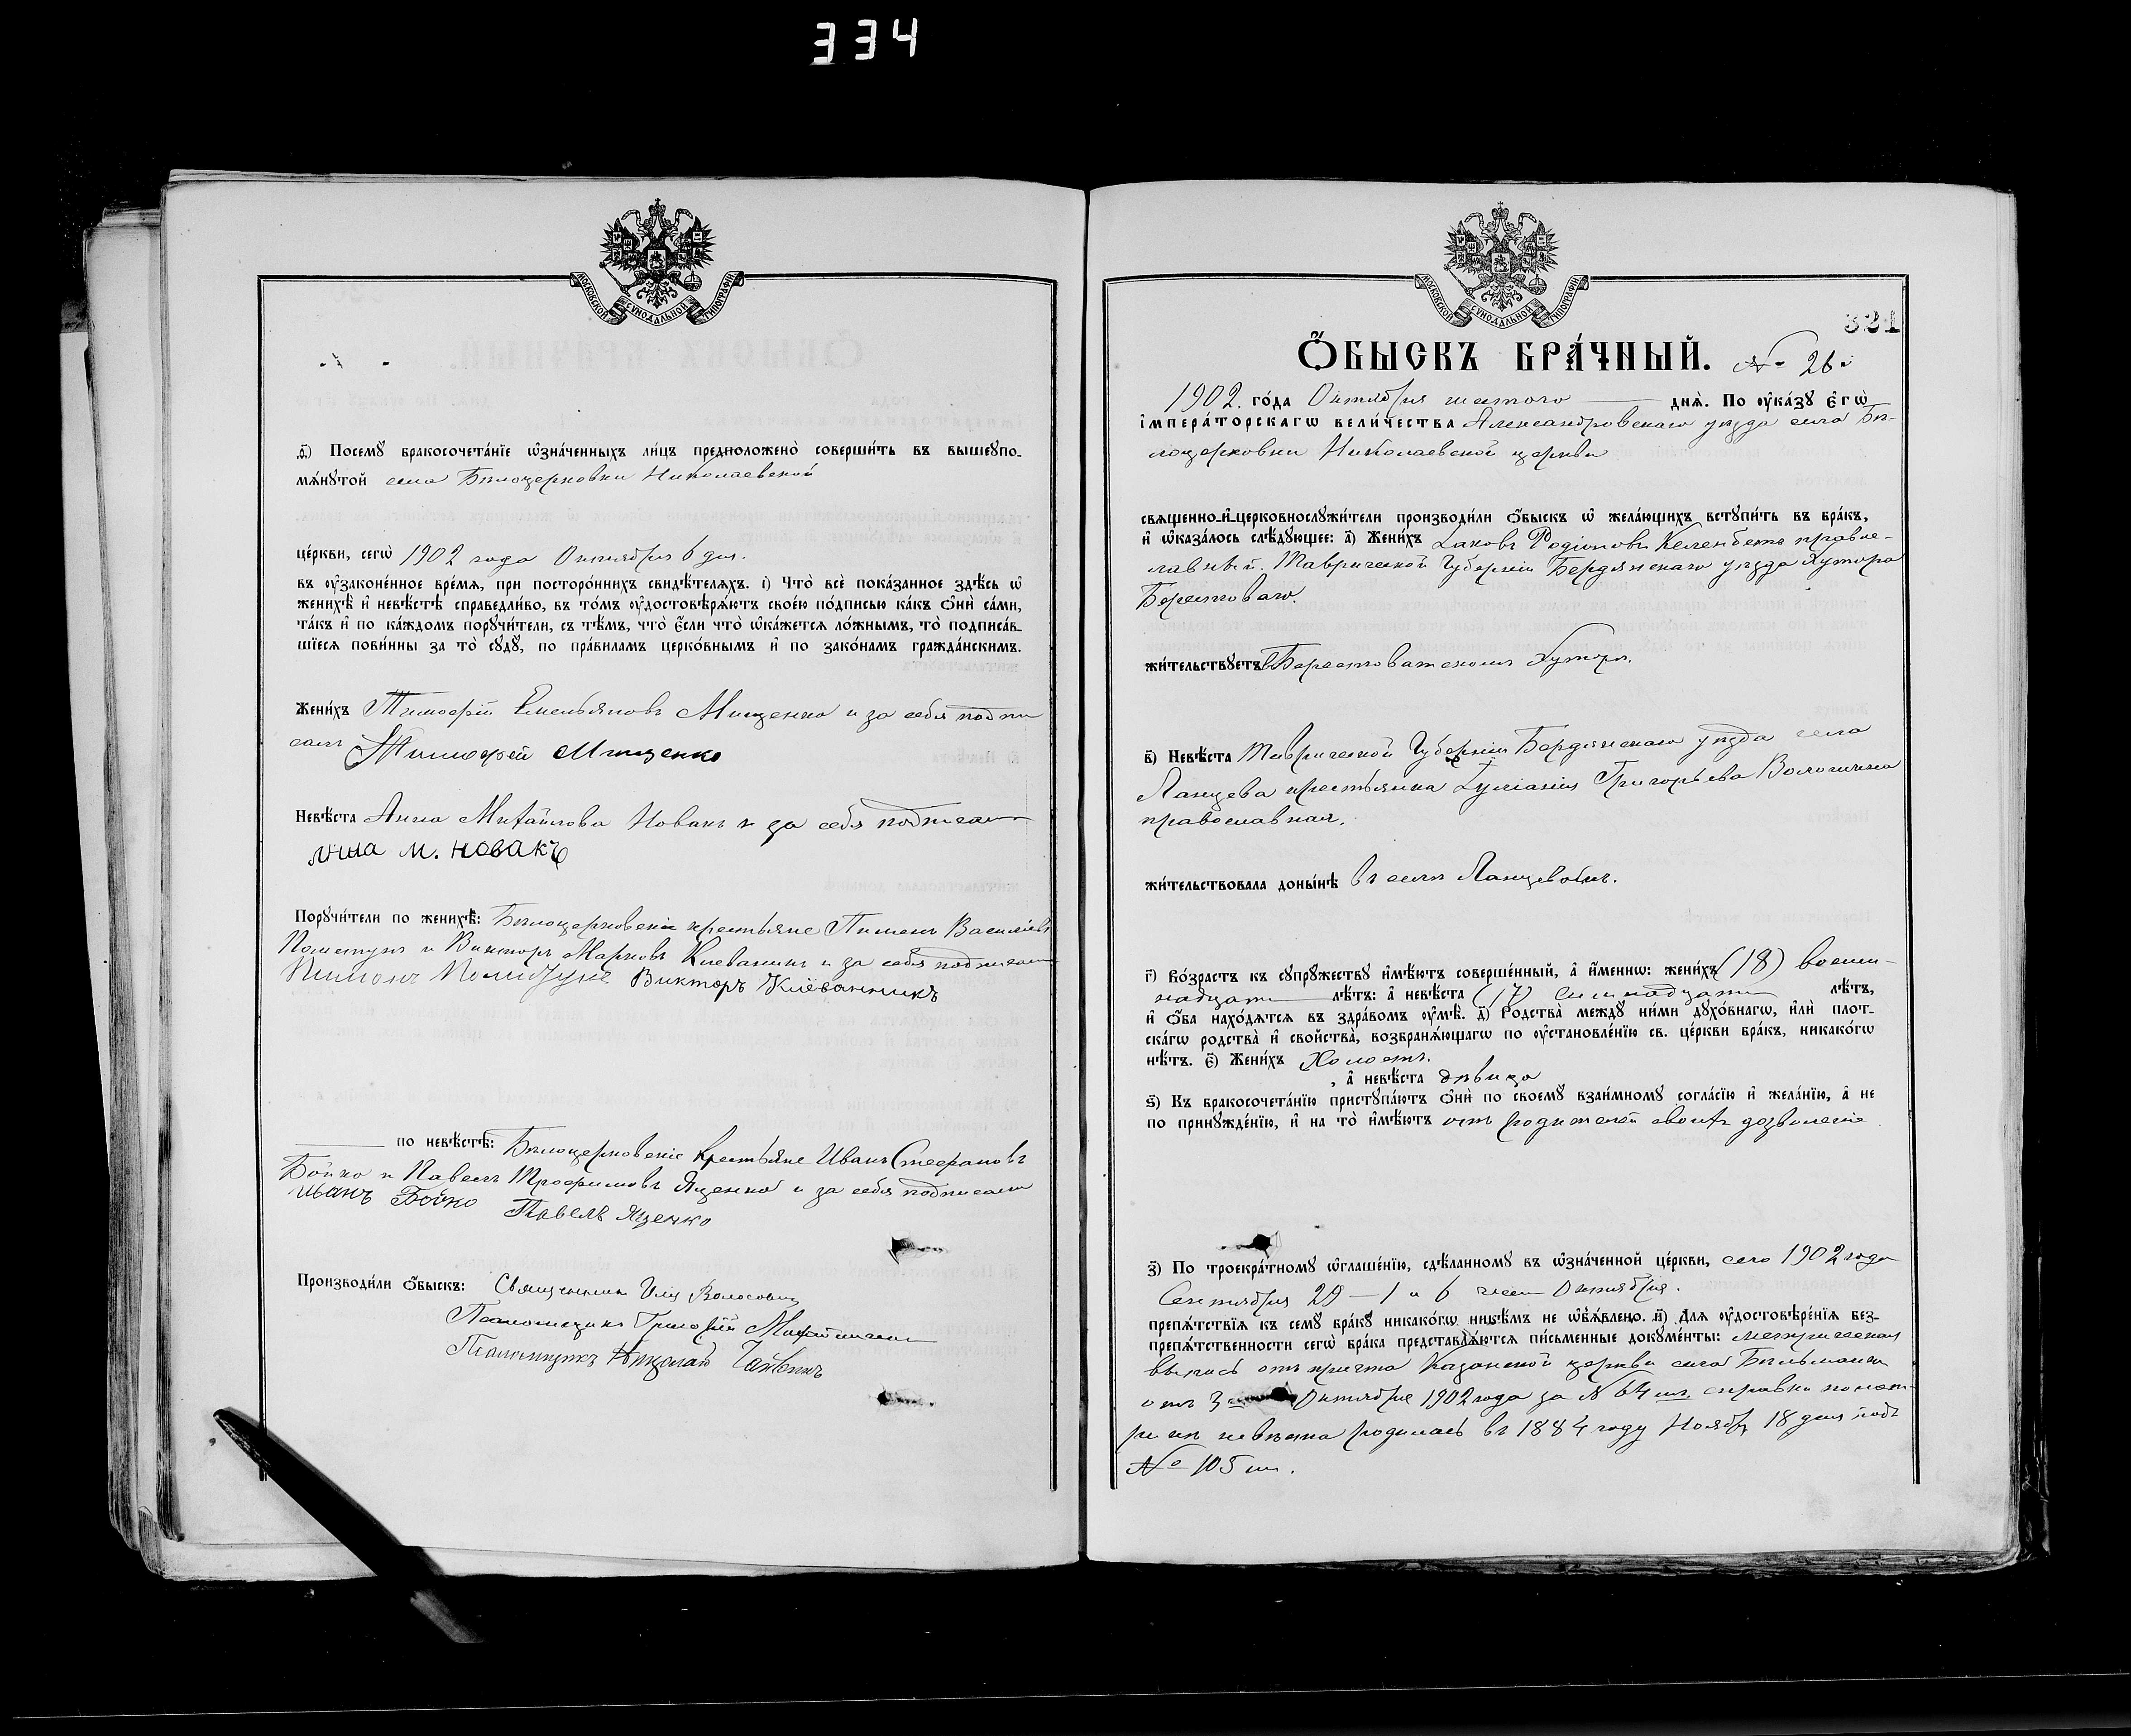 334
МОСКОВСКОЙ СУНОДАЛЬНОЙ ТИПОГРАФІИ
д҃) Посемꙋ бракосочета́нїе ѡ҆зна́ченныхъ ли́цъ предположено̀ соверши́ть въ вышеꙋпо-
мѧ́нꙋтой села Бѣлоцерковки Николаевской
це́ркви, сегѡ̀ 1902 года Октября 6 дня.
въ ᲂу҆зако́ненное вре́мѧ, при посторо́ннихъ свидѣ́телѧхъ. і҃) Что̀ всѐ пока́занное здѣ́сь ѡ҆
женихѣ̀ и҆ невѣ́стѣ справедли́во, въ то́мъ ᲂу҆достовѣрѧ́ютъ свое́ю по́дписью ка́къ ѻ҆нѝ са́ми,
та́къ и҆ по ка́ждомъ порꙋчи́тели, съ тѣ́мъ, что̀ є҆́сли что̀ ѡ҆ка́жетсѧ ло́жнымъ, то̀ подписа́в-
шїесѧ пови́нны за то̀ сꙋдꙋ̀, по пра́виламъ церко́внымъ и҆ по зако́намъ гражда́нскимъ.
Жени́хъ Тимофей Емельяновъ Мищенко и за себя подпи
салъ Тимофей Мищенко
Невѣ́ста Анна Михайлова Новакъ и за себя подписала
Анна М. Новакъ
Порꙋчи́тели по женихѣ̀: Бѣлоцерковскіе крестьяне Пименъ Васильевъ
и Викторъ Марковъ Кіеванникъ и за себя подписали
Викторъ Кіеванникъ
по невѣ́стѣ: Бѣлоцерковскіе крестьяне Иванъ Стефановъ
Бойко и Павелъ Трофимовъ Яценко и за себя подписали
Иванъ Бойко Павелъ Яценко
Производи́ли ѻ҆́быскъ: Священникъ Илія Волосовичъ
Псаломщикъ Григорій
Псаломщикъ Николай
МОСКОВСКОЙ СУНОДАЛЬНОЙ ТИПОГРАФІИ
321
Ѻ҆́БЫСКЪ БРА́ЧНЫЙ. № 26
1902. го́да Октября шестого днѧ̀. По ᲂу҆ка́зꙋ є҆гѡ̀
і҆мпера́торскагѡ вели́чества Александровскаго уѣзда села Бѣ-
лоцерковки Николаевской церкви
свѧщенно-и҆-церковнослꙋжи́тели производи́ли ѻ҆́быскъ ѡ҆ жела́ющихъ встꙋпи́ть въ бра́къ,
и҆ ѡ҆каза́лось слѣ́дꙋющее: а҃) Жени́хъ Іаковъ Родіоновъ Келембета правос-
лавный. Таврической Губерніи Бердянскаго уѣзда Хутора
Берестоваго.
жи́тельствꙋетъ Берестоватскомъ Хуторѣ.
в҃) Невѣ́ста Таврической Губерніи Бердянскаго уѣзда села
Ланцева крестьянка Іуліанія Григорьева
православная.
жи́тельствовала доны́нѣ въ селѣ Ланцевомъ.
г҃) Во́зрастъ къ сꙋпрꙋ́жествꙋ и҆мѣ́ютъ соверше́нный, а҆ и҆́менно: жени́хъ (18) восем-
надцать лѣ́тъ: а҆ невѣ́ста (17) семнадцать лѣ́тъ,
и҆ ѻ҆́ба нахо́дѧтсѧ въ здра́вомъ ᲂу҆мѣ̀. д҃) Родства̀ междꙋ̀ ни́ми дꙋхо́внагѡ, и҆лѝ плот-
ска́гѡ родства̀ и҆ сво́йства̀, возбранѧ́ющагѡ по ᲂу҆становле́нїю св. це́ркви бра́къ, никако́гѡ
нѣ́тъ. є҃) Жени́хъ Холостъ.
, а҆ невѣ́ста дѣвица
ѕ҃) Къ бракосочета́нїю пристꙋпа́ютъ ѻ҆нѝ по своемꙋ̀ взаи́мномꙋ согла́сїю и҆ жела́нїю, а҆ не
по принꙋжде́нїю, и҆ на то̀ и҆мѣ́ютъ отъ родителей своихъ дозволеніе
з҃) По троекра́тномꙋ ѡ҆глаше́нїю, сдѣ́ланномꙋ въ ѡ҆зна́ченной це́ркви, сего 1902 года
Сентября 29 – 1 и 6 чис. Октября.
препѧ́тствїѧ къ семꙋ̀ бра́кꙋ никако́гѡ никѣ́мъ не ѡ҆б̾ѧ́влено. и҃) Для ᲂу҆достовѣре́нїѧ без-
препѧ́тственности сегѡ̀ бра́ка представлѧ́ютсѧ пи́сьменные докꙋме́нты: метрическая
выпись отъ причта Казанской церкви села Бѣльманки
отъ 3 Октября 1902 года за № 64 справка по мет-
рикѣ невѣста родилась въ 1884 году Ноября 18 дня подъ
№ 105